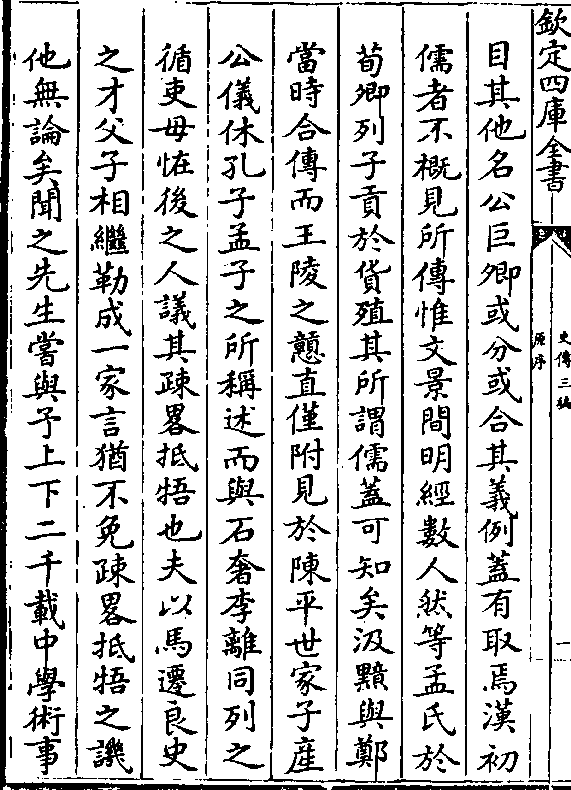 欽定四庫全書
史傳三編
原序
一
目其他名公巨卿或分或合其義例蓋有取焉漢初
儒者不概見所傳惟文景間明經數人然等孟氏於
荀卿列子貢於貨殖其所謂儒蓋可知矣汲黯與鄭
當時合傳而王陵之戇直僅附見於陳平世家子產
公儀休孔子孟子之所稱述而與石奢李離同列之
循吏毋怪後之人議其疎畧抵牾也夫以馬遷良史
之才父子相繼勒成一家言猶不免疎畧抵牾之譏
他無論矣聞之先生嘗與予上下二千載中學術事